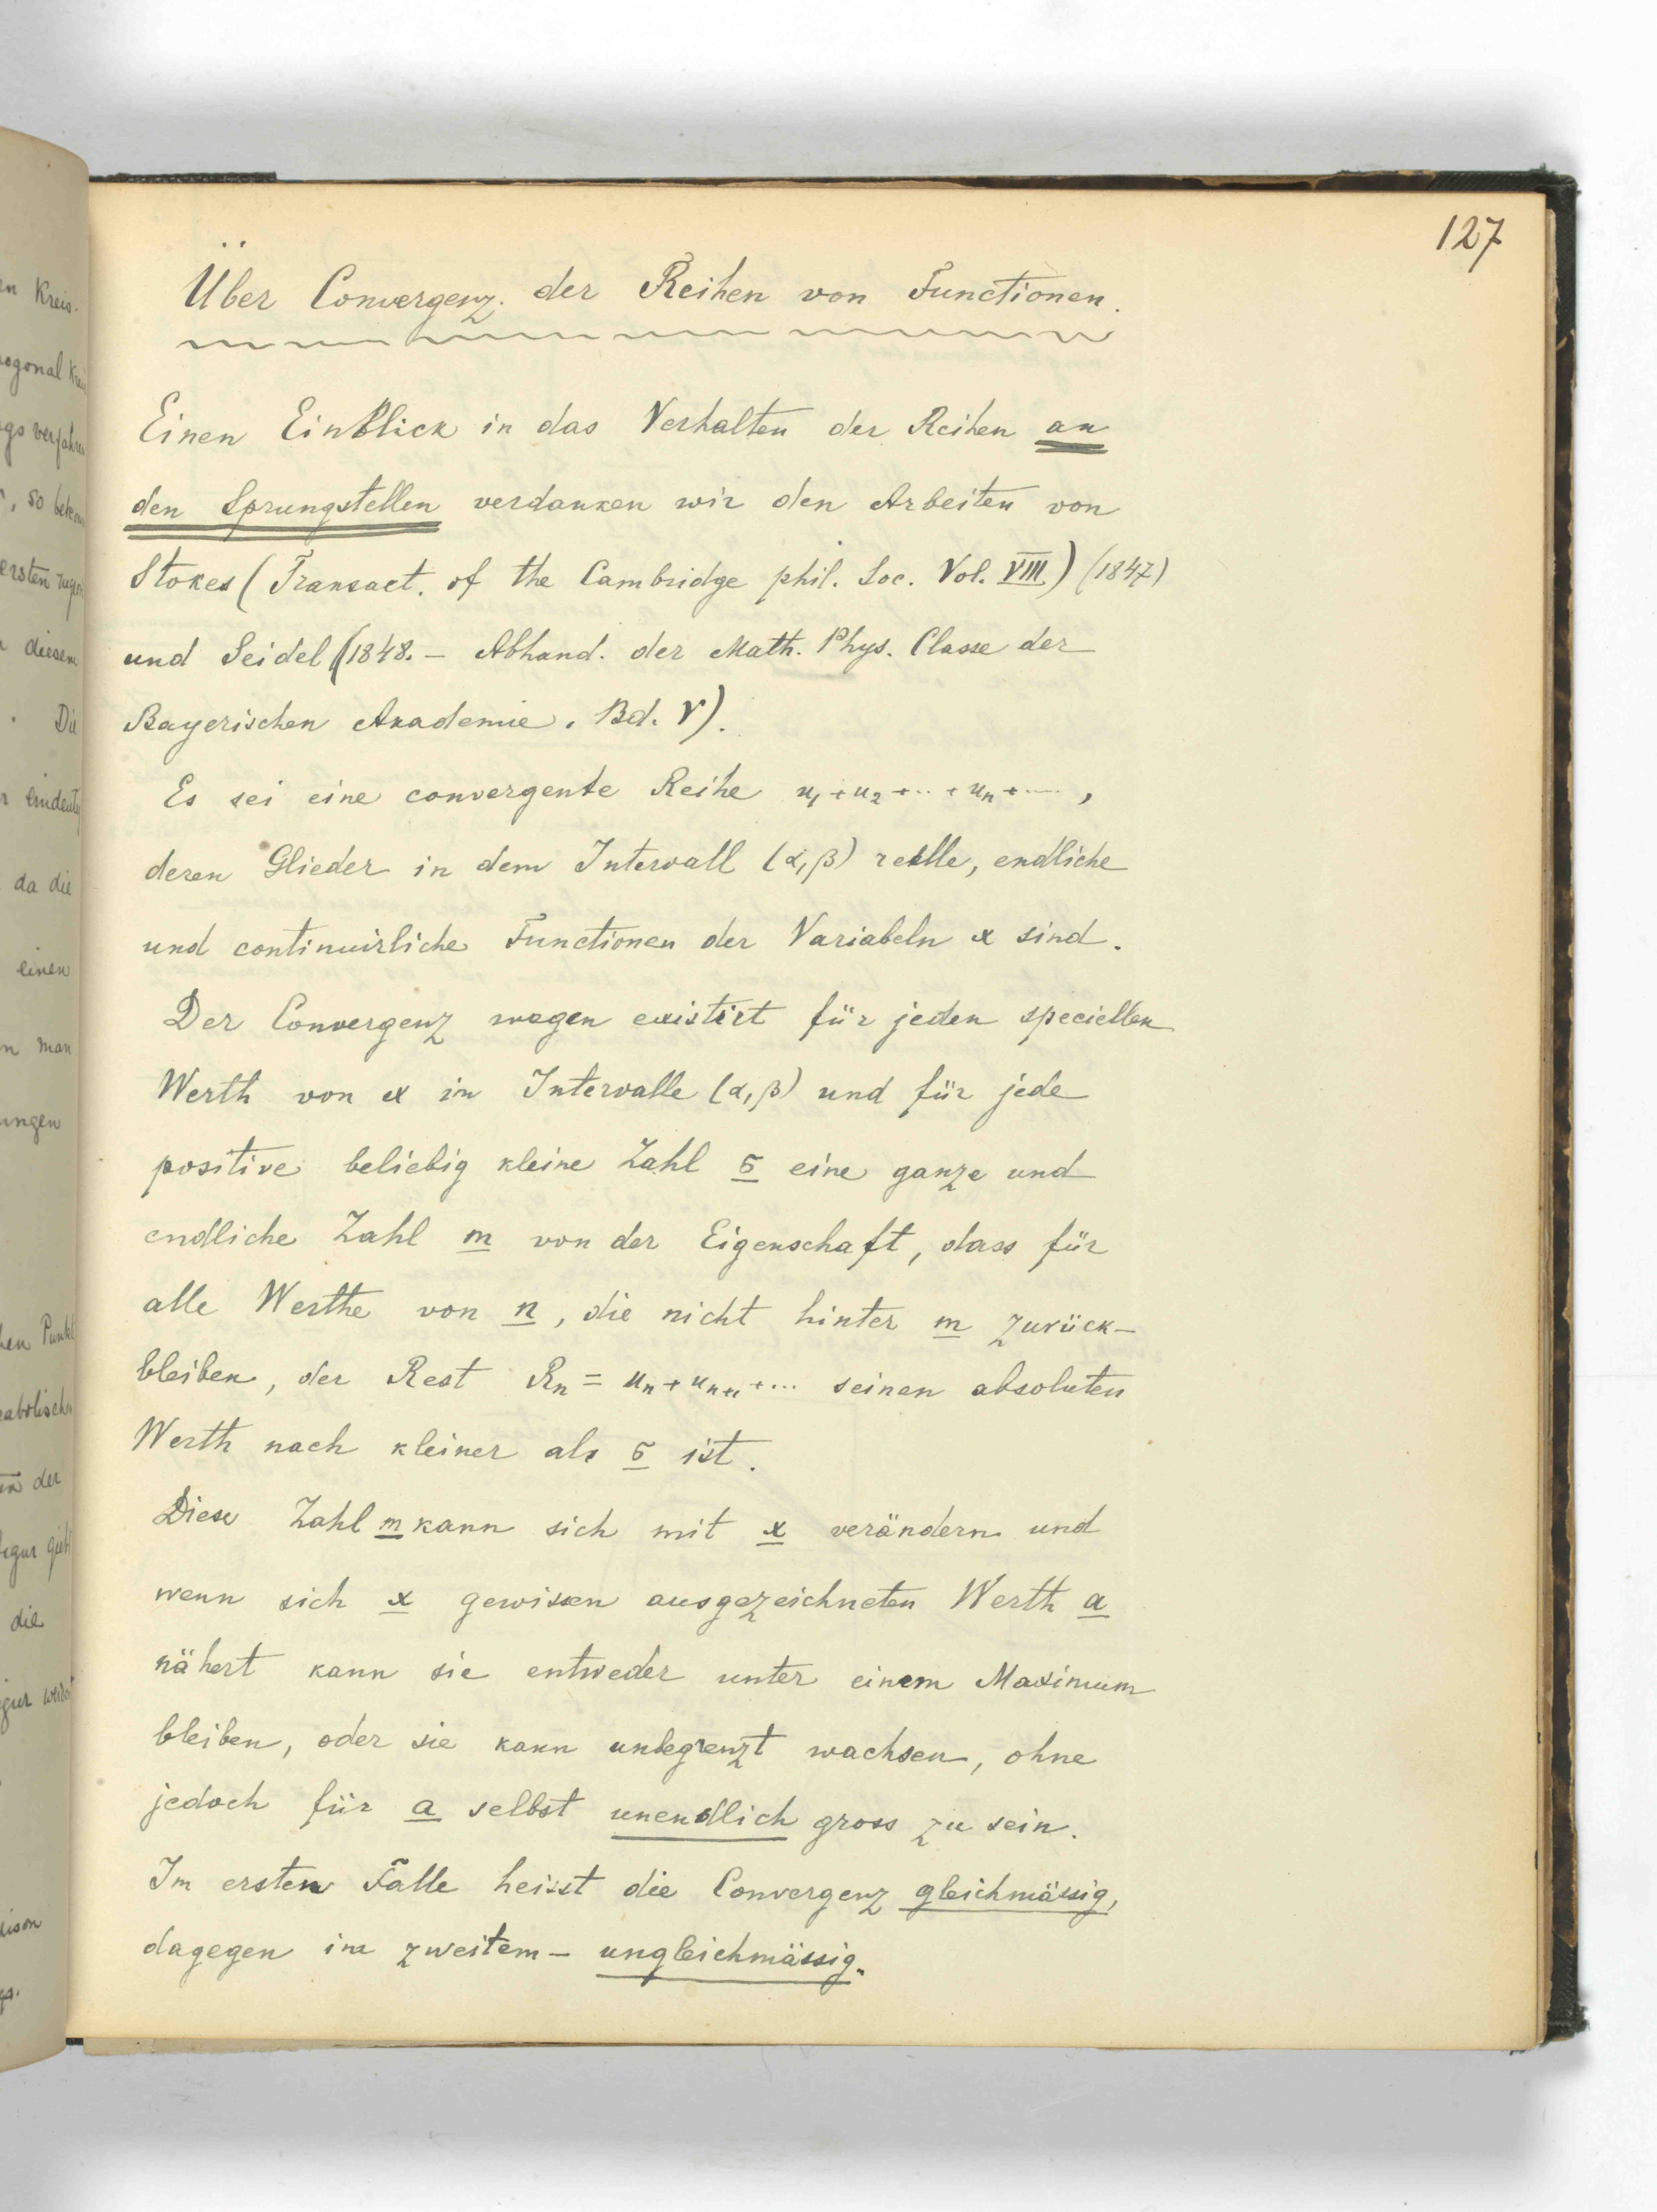 127
Über Convergenz der Reihen von Functionen.
Einen Einblick in das Verhalten der Reihen an
den Sprungstellen verdanken wir den Arbeiten von
Stokes (Transact. of the Cambridge phil. Soc. Vol. VIII.) (1847)
und Seidel (1848. – Abhand. der Math. Phys. Classe der
Bayerischen Akademie. Bd. V).
Es sei eine convergente Reihe u₁+u₂+..+uₙ+....,
deren Glieder in dem Intervall (α,β) reelle, endliche
und continuirliche Functionen der Variabeln x sind.
Der Convergenz wegen existirt für jeden speciellen
Werth von x im Intervalle (α,β) und für jede
positive beliebig kleine Zahl σ eine ganze und
endliche Zahl m von der Eigenschaft, dass für
alle Werthe von n, die nicht hinter m zurück-
bleiben, der Rest Rₙ = uₙ+uₙ₊₁+... seinen absoluten
Werth nach kleiner als σ ist.
Diese Zahl m kann sich mit x verändern und
wenn sich x gewissen ausgezeichneten Werth a
nähert kann sie entweder unter einem Maximum
bleiben, oder sie kann unbegrenzt wachsen, ohne
jedoch für a selbst unendlich gross zu sein.
Im ersten Falle heisst die Convergenz gleichmässig,
dagegen im zweitem – ungleichmässig.
en Kreis-
ogonal
verfahren
, so
ersten
diesem
. Die
da die
einen
n man
ungen
hen Punkt
in der
die